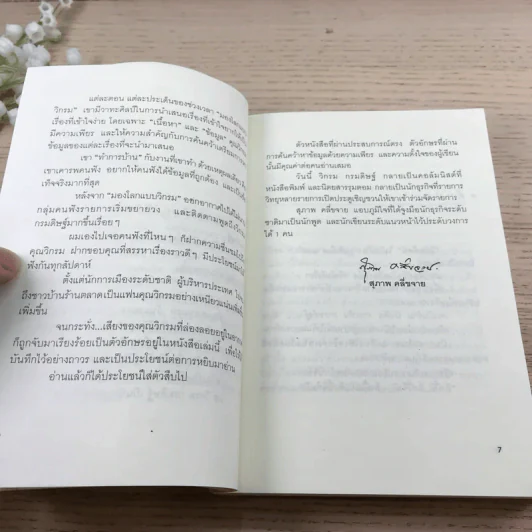 แต่ละตอน แต่ละประเด็นของช่วงเวลา “มองโลก
วิกรม” เขามีวาทะศิลป์ในการนำเสนอเรื่องที่เข้าใจยากให้
เรื่องที่เข้าใจง่าย โดยเฉพาะ “เนื้อหา” และ “ข้อมูล”
มีความเพียร และให้ความสำคัญกับการค้นคว้าเตรียมการ
ข้อมูลของแต่ละเรื่องที่จะนำมาเสนอ
เขา “ทำการบ้าน” กับงานที่เขาทำ ด้วยเหตุผลเดียว
เขาเคารพคนฟัง อยากให้คนฟังได้ข้อมูลที่ถูกต้อง และ
เท็จจริงมากที่สุด
หลังจาก “มองโลกแบบวิกรม” ออกอากาศไปได้
กลุ่มคนฟังรายการเริ่มขยายวง และติดตามพูดถึง
กรมดิษฐ์มากขึ้นเรื่อยๆ
ผมเองไปเจอคนฟังที่ไหนๆ ก็ฝากความชื่นชม
คุณวิกรม ฝากขอบคุณที่สรรหาเรื่องราวดีๆ มีประโยชน์
ฟังกันทุกสัปดาห์
ตั้งแต่นักการเมืองระดับชาติ ผู้บริหารประเทศ
ถึงชาวบ้านร้านตลาดเป็นแฟนคุณวิกรมอย่างเหนียวแน่น
เพิ่มขึ้น
จนกระทั่ง...เสียงของคุณวิกรมที่ล่องลอยอยู่ใน
ก็ถูกจับมาเรียงร้อยเป็นตัวอักษรอยู่ในหนังสือเล่มนี้ เพื่อให้
บันทึกไว้อย่างถาวร และเป็นประโยชน์ต่อการหยิบมาอ่าน
อ่านแล้วก็ได้ประโยชน์ใส่ตัวสืบไป
ตัวหนังสือที่ผ่านประสบการณ์ตรง ตัวอักษรที่ผ่าน
การค้นคว้าหาข้อมูลด้วยความเพียร และความตั้งใจของผู้เขียน
นั้นมีคุณค่าต่อคนอ่านเสมอ
วันนี้ วิกรม กรมดิษฐ์ กลายเป็นคอลัมนิสต์ที่
หนังสือพิมพ์ และนิตยสารรุมตอม กลายเป็นนักธุรกิจที่รายการ
วิทยุหลายรายการเปิดประตูเชิญชวนให้เขาเข้าร่วมจัดรายการ
สุภาพ คลี่ขจาย แอบภูมิใจที่ได้จูงมือนักธุรกิจระดับ
ชาติมาเป็นนักพูด และนักเขียนระดับแนวหน้าไว้ประดับวงการ
ได้ 1 คน
สุภาพ คลี่ขจาย
สุภาพ คลี่ขจาย
7